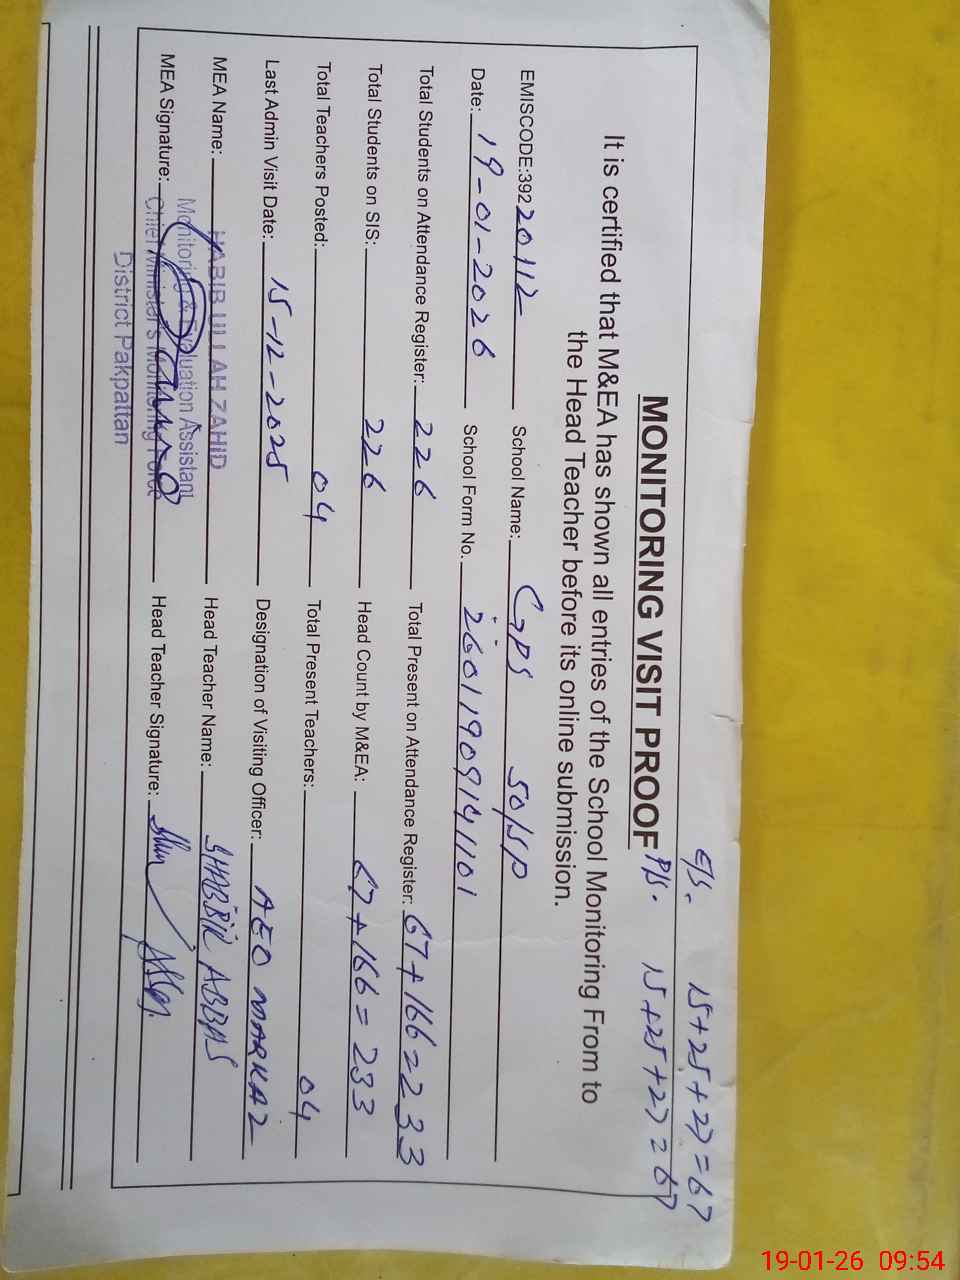 E/S. 15+25+27=67
P/S. 15+25+27=67
MONITORING VISIT PROOF
It is certified that M&EA has shown all entries of the School Monitoring From to
the Head Teacher before its online submission.
EMISCODE:39220112 School Name: GPS 50/SP
Date: 19-01-2026 School Form No. 26011909141101
Total Students on Attendance Register: 226 Total Present on Attendance Register: 67+166=233
Total Students on SIS: 226 Head Count by M&EA: 67+166=233
Total Teachers Posted: 04 Total Present Teachers: 04
Last Admin Visit Date: 15-12-2025 Designation of Visiting Officer: AEO MARKAZ
MEA Name: HABIB ULLAH ZAHID Head Teacher Name: SHABBIR ABBAS
Monitoring & Evaluation Assistant
MEA Signature: Chief Minister's Monitoring Force Head Teacher Signature:
District Pakpattan
19-01-26 09:54